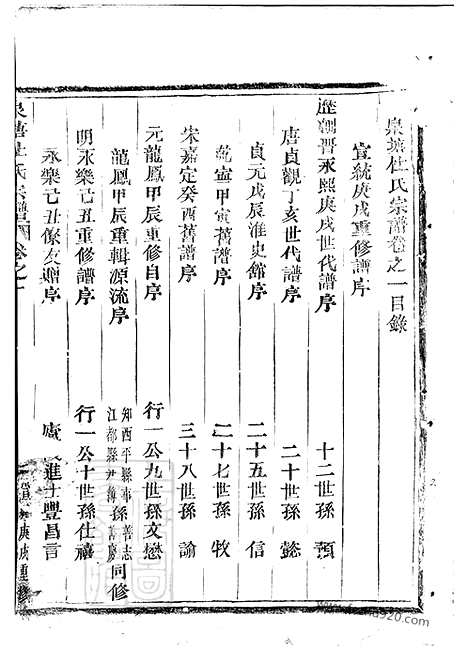 泉塘杜氏宗譜卷之一目錄
宣統庚戌重修譜序
歷朝晋永熙庚戌世代譜序 十二世孫 預
唐貞觀丁亥世代譜序 二十世孫
貞元戊辰淮史館序 二十五世孫 信
乾寧甲寅舊譜序 二十七世孫 牧
宋嘉定癸酉舊譜序 三十八世孫 諭
元龍鳳甲辰重修自序 行一公九世孫文懋
龍鳳甲辰重輯源流序 知西平縣事孫善志 江都縣尹 孫善慶 同修
明永樂己丑重修譜序 行一公十世孫仕禧
永樂己丑僚友贈序 進士豐昌言
泉塘杜氏宗譜 卷之一
庚戌重修